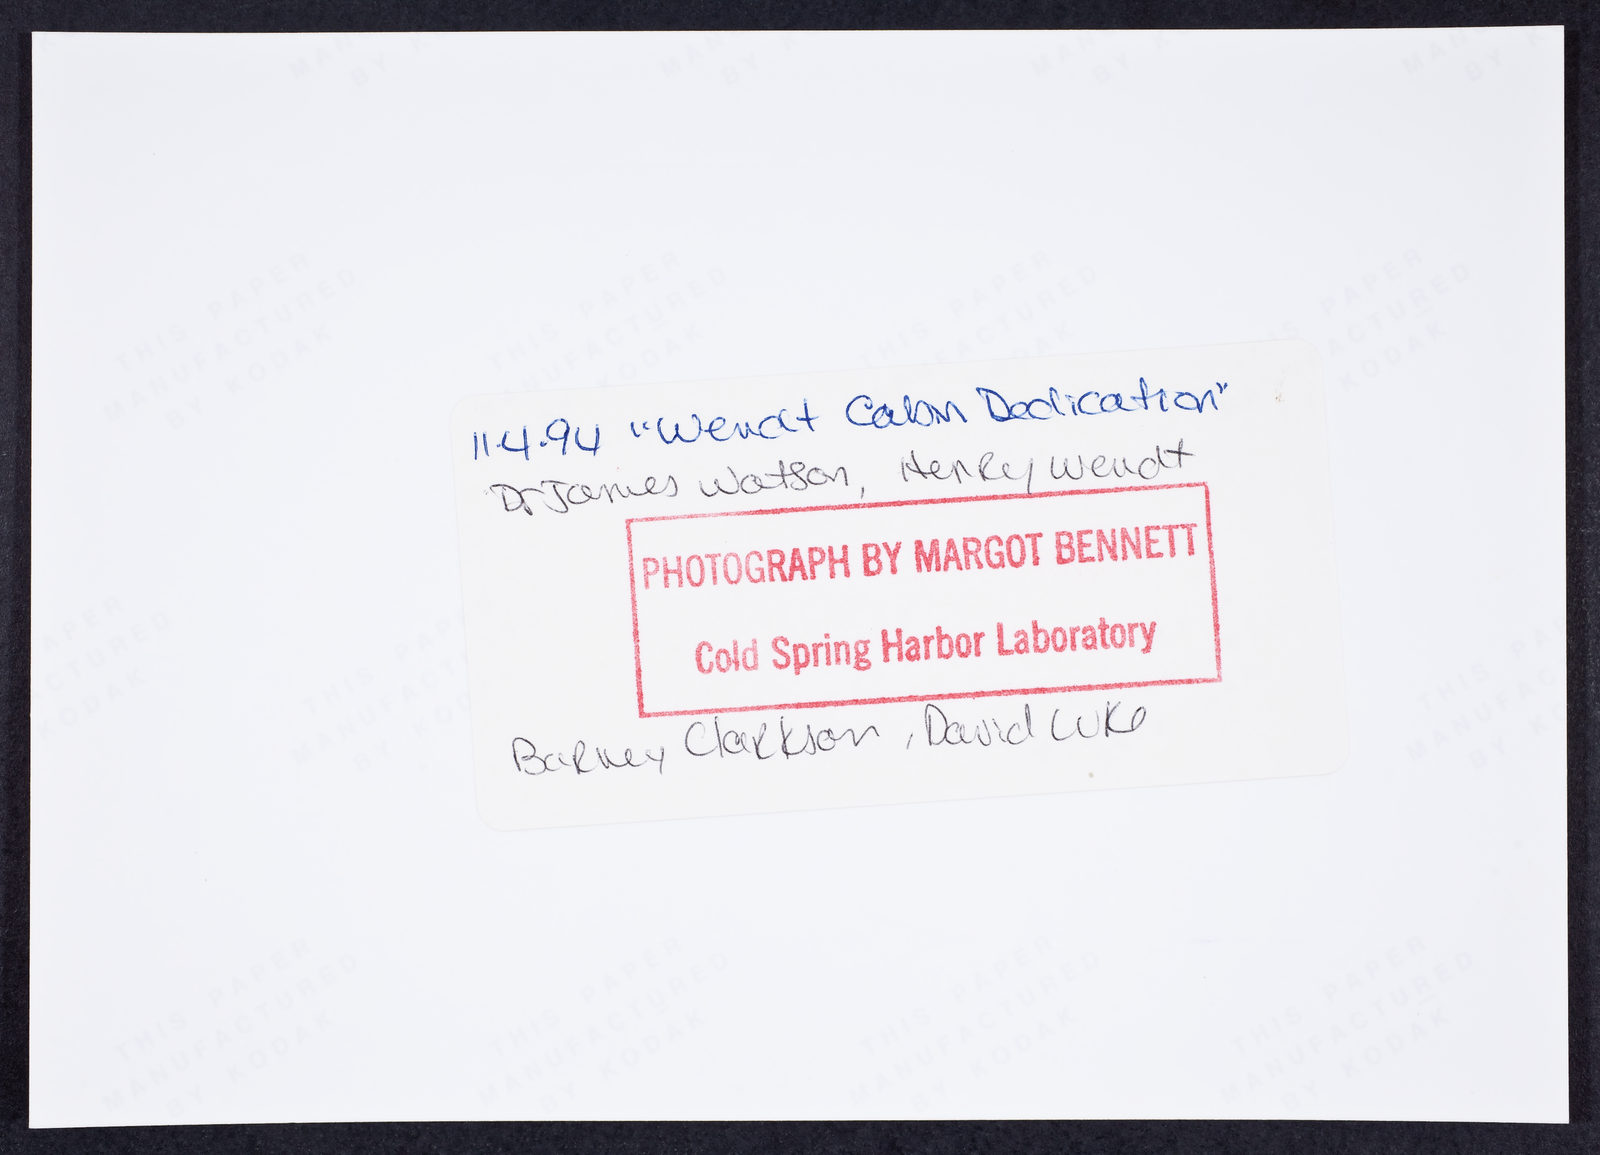 11.4.94 "Wendt Cabin Dedication"
Dr James Watson, Henry Wendt
PHOTOGRAPH BY MARGOT BENNETT
Cold Spring Harbor Laboratory
Barney Clarkson, David Luke
THIS PAPER
MANUFACTURED
BY KODAK